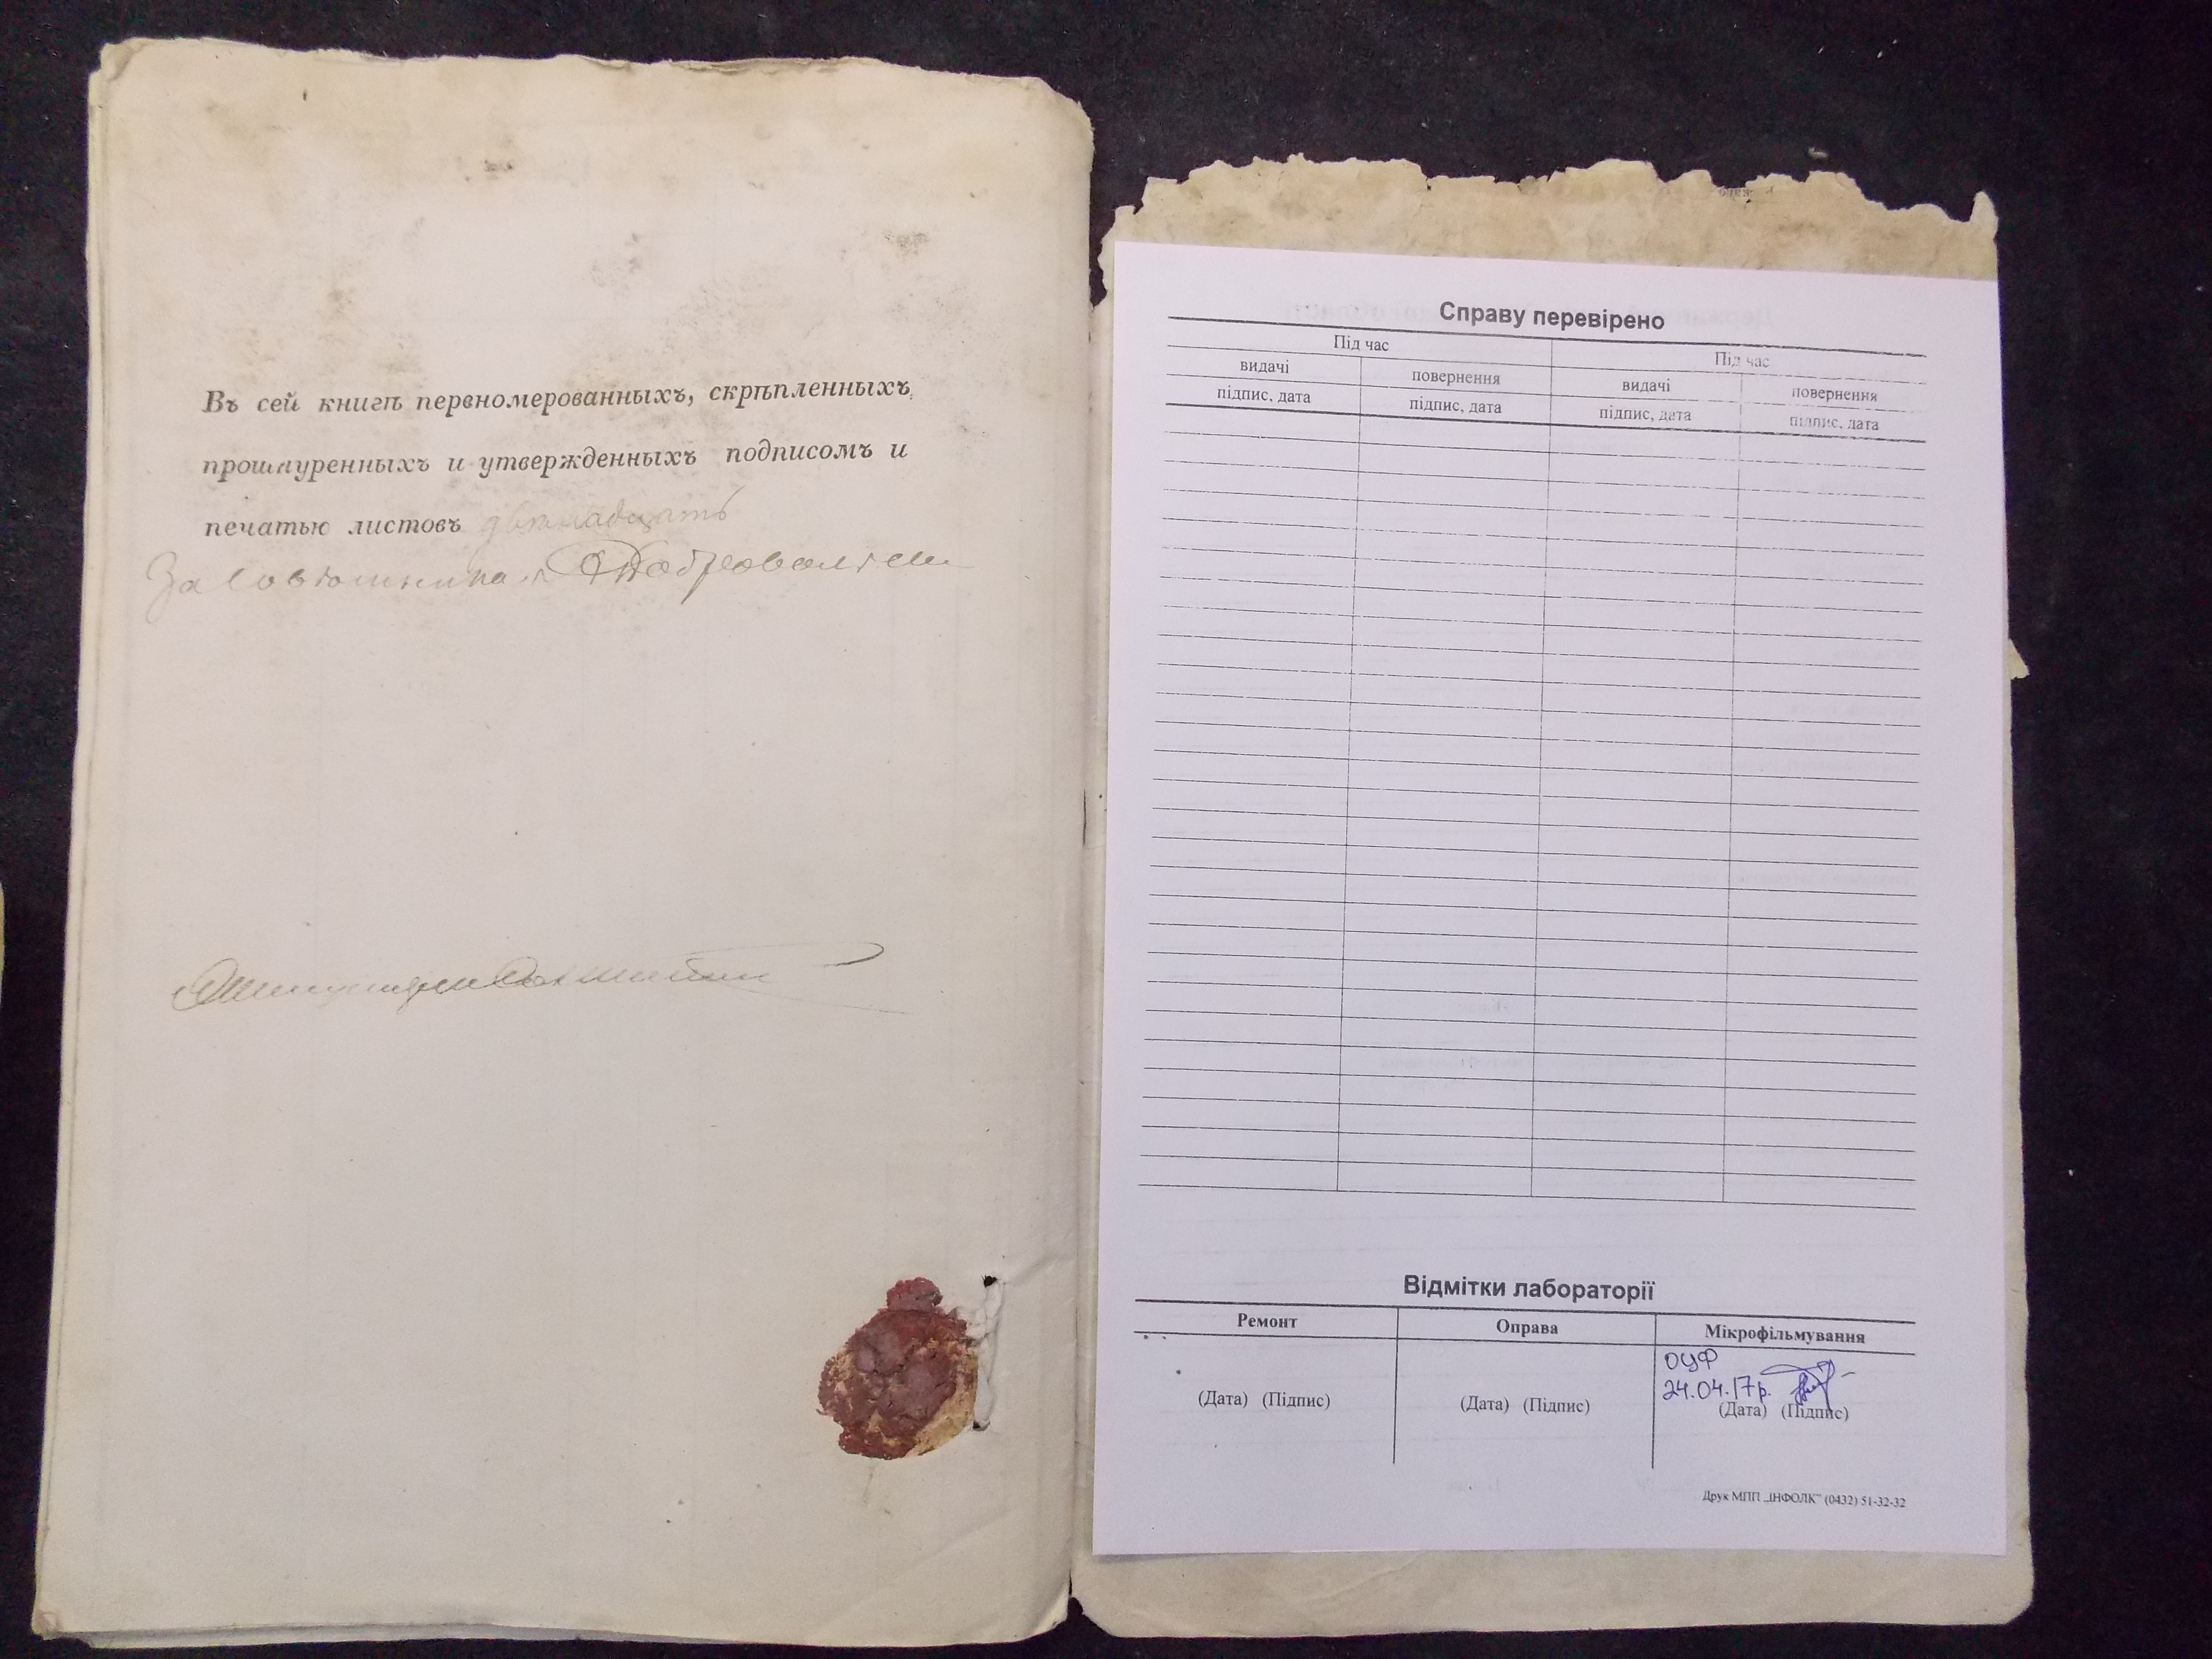 Въ сей книгѣ перeномерованныхъ, скрѣпленныхъ,
прошнуренныхъ и утвержденныхъ подписомъ и
печатью листовъ двѣнадцать
За Совѣтника
Справу перевірено
Під час
Під час
видачі
повернення
видачі
повернення
підпис, дата
підпис, дата
підпис, дата
підпис, дата
Відмітки лабораторії
Ремонт
Оправа
Мікрофільмування
ОЦФ
24.04.17р.
(Дата) (Підпис)
(Дата) (Підпис)
(Дата) (Підпис)
Друк МПП „ІНФОЛК" (0432) 51-32-32